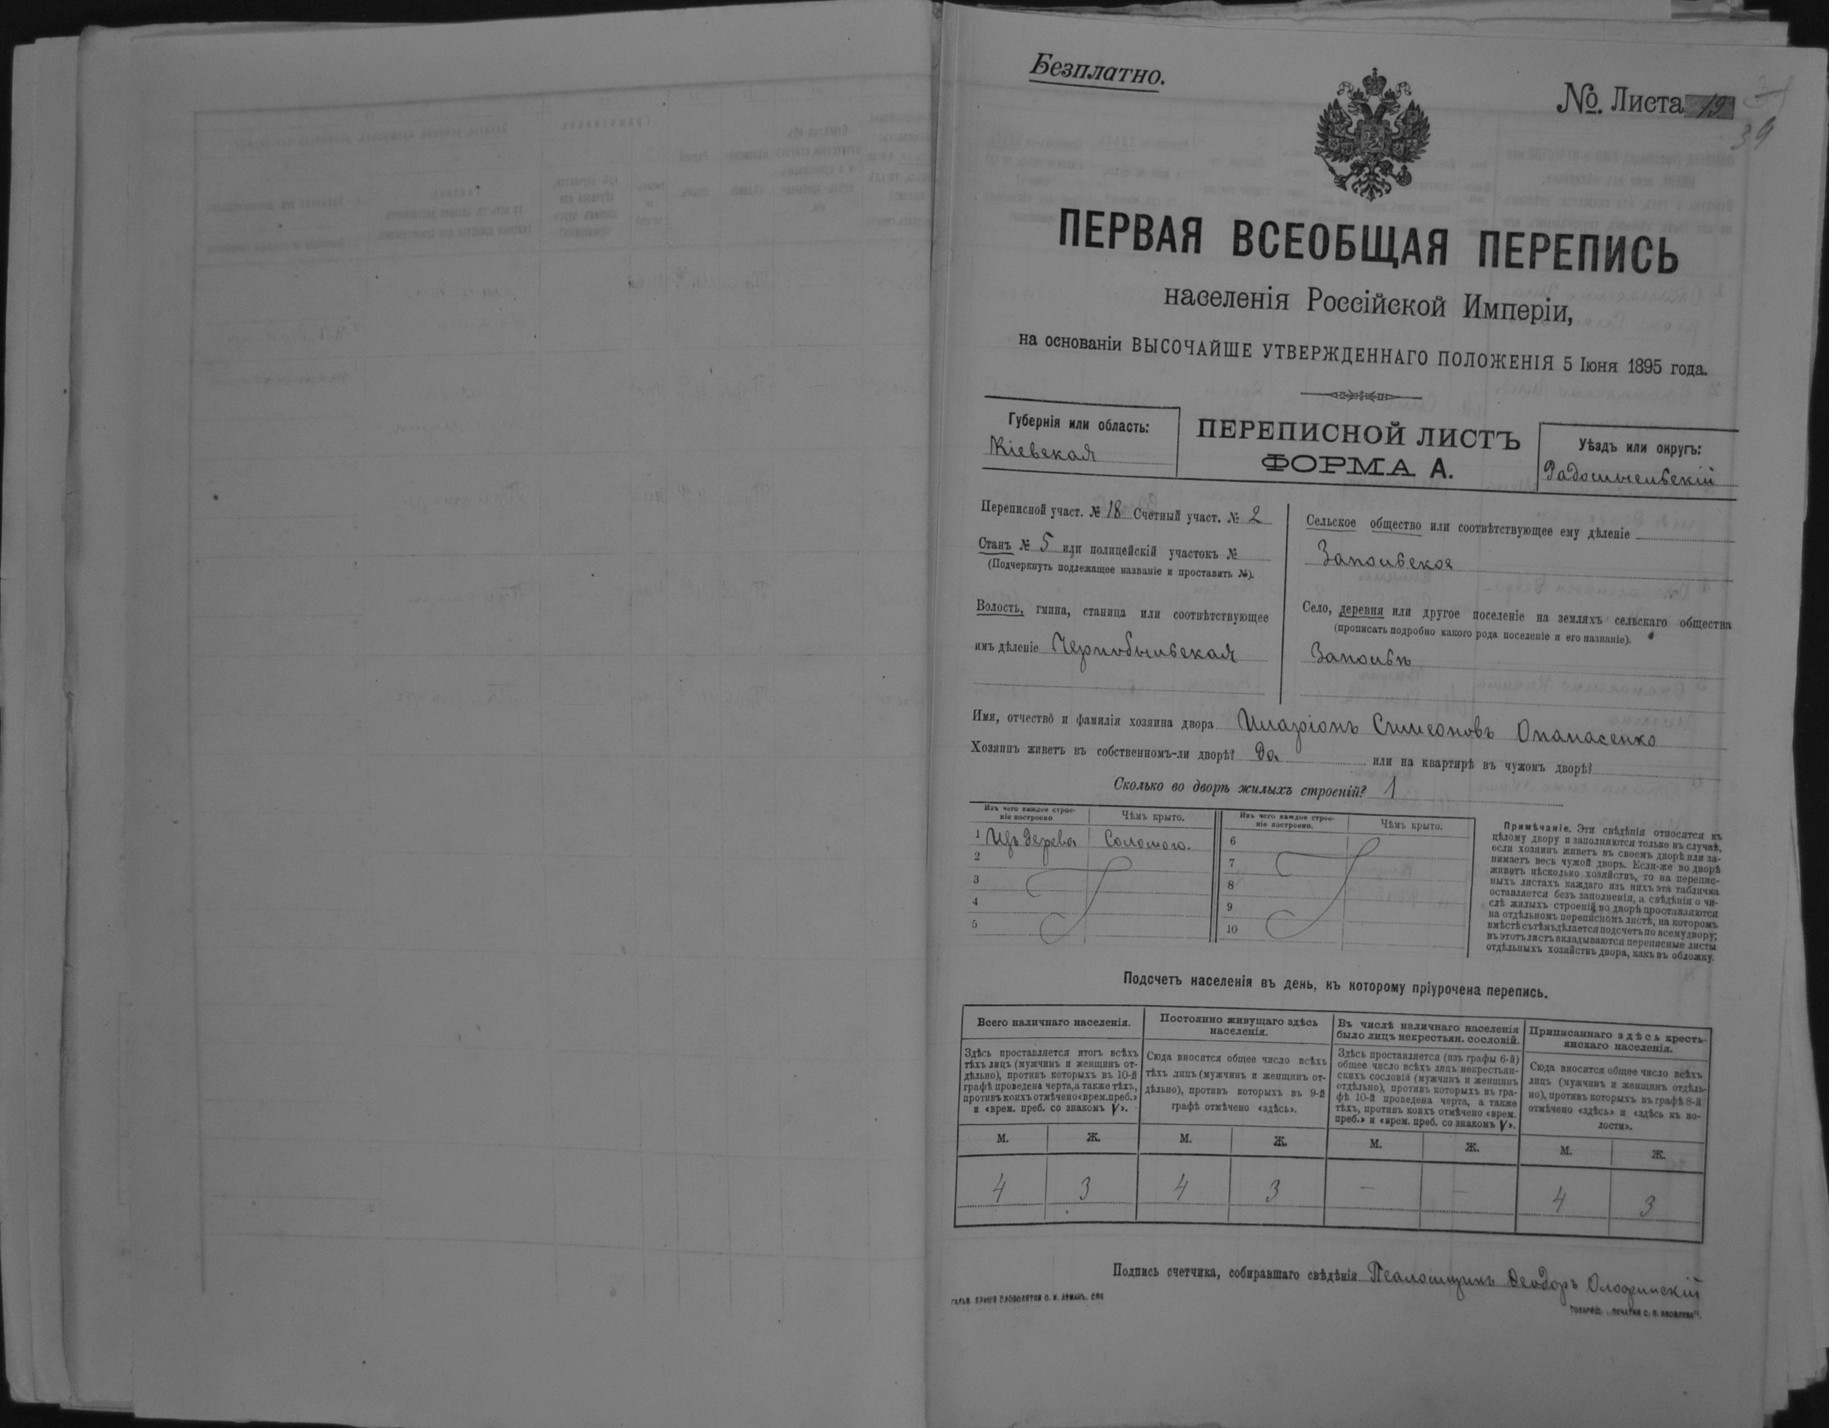 Безплатно.
№. Листа 19
39
ПЕРВАЯ ВСЕОБЩАЯ ПЕРЕПИСЬ
населенія Россійской Имперіи,
на основаніи ВЫСОЧАЙШЕ УТВЕРЖДЕННАГО ПОЛОЖЕНІЯ 5 Іюня 1895 года.
Губернія или область:
Кіевская
ПЕРЕПИСНОЙ ЛИСТЪ
ФОРМА А.
Уѣздъ или округъ:
Радомысльскій
Переписной участ. № 18 Счетный участ. № 2
Станъ № 5 или полицейскій участокъ №
(Подчеркнуть подлежащее названіе и проставить №).
Волость, гмина, станица или соотвѣтствующее
имъ дѣленіе Чернобыльская
Сельское общество или соотвѣтствующее ему дѣленіе
Запольское
Село, деревня или другое поселеніе на земляхъ сельскаго общества
(прописать подробно какого рода поселеніе и его названіе).
Имя, отчество и фамилія хозяина двора Иларіонъ Симеоновъ Опанасенко
Хозяинъ живетъ въ собственномъ-ли дворѣ? Да или на квартирѣ въ чужомъ дворѣ?
Сколько во дворѣ жилыхъ строеній? 1
Изъ чего каждое строе-
ніе построено
Чѣмъ крыто.
1 Изъ дерева Соломою.
2
3
4
5
Изъ чего каждое строе-
ніе построено.
Чѣмъ крыто.
6
7
8
9
10
Примѣчаніе. Эти свѣдѣнія относятся къ
цѣлому двору и заполняются только въ случаѣ,
если хозяинъ живетъ въ своемъ дворѣ или за-
нимаетъ весь чужой дворъ. Если-же во дворѣ
живетъ нѣсколько хозяйствъ, то на перепис-
ныхъ листахъ каждаго изъ нихъ эта табличка
оставляется безъ заполненія, а свѣдѣнія о чи-
слѣ жилыхъ строеній во дворѣ проставляются
на отдѣльномъ переписномъ листѣ, на которомъ
вмѣстѣ съ тѣмъ дѣлается подсчетъ по всему двору;
въ этотъ листъ вкладываются переписные листы
отдѣльныхъ хозяйствъ двора, какъ въ обложку.
Подсчетъ населенія въ день, къ которому пріурочена перепись.
Всего наличнаго населенія.
Здѣсь проставляется итогъ всѣхъ
тѣхъ лицъ (мужчинъ и женщинъ от-
дѣльно), противъ которыхъ въ 10-й
графѣ проведена черта, а также тѣхъ,
противъ коихъ отмѣчено «врем. преб.»
и «врем. преб. со знакомъ V».
Постоянно живущаго здѣсь
населенія.
Сюда вносится общее число всѣхъ
тѣхъ лицъ (мужчинъ и женщинъ от-
дѣльно), противъ которыхъ въ 9-й
графѣ отмѣчено «здѣсь».
Въ числѣ наличнаго населенія
было лицъ некрестьян. сословій.
Здѣсь проставляется (изъ графы 6-й)
общее число всѣхъ лицъ некрестьян-
скихъ сословій (мужчинъ и женщинъ
отдѣльно), противъ которыхъ въ гра-
фѣ 10-й проведена черта, а также
тѣхъ, противъ коихъ отмѣчено «врем.
преб.» и «врем. преб. со знакомъ V».
Приписаннаго здѣсь кресть-
янскаго населенія.
Сюда вносится общее число всѣхъ
лицъ (мужчинъ и женщинъ отдѣль-
но), противъ которыхъ въ графѣ 8-й
отмѣчено «здѣсь» и «здѣсь къ во-
лости».
М. Ж. М. Ж. М. Ж. М. Ж.
4 3 4 3 — — 4 3
Подпись счетчика, собиравшаго свѣдѣнія Псаломщикъ Ѳеодоръ